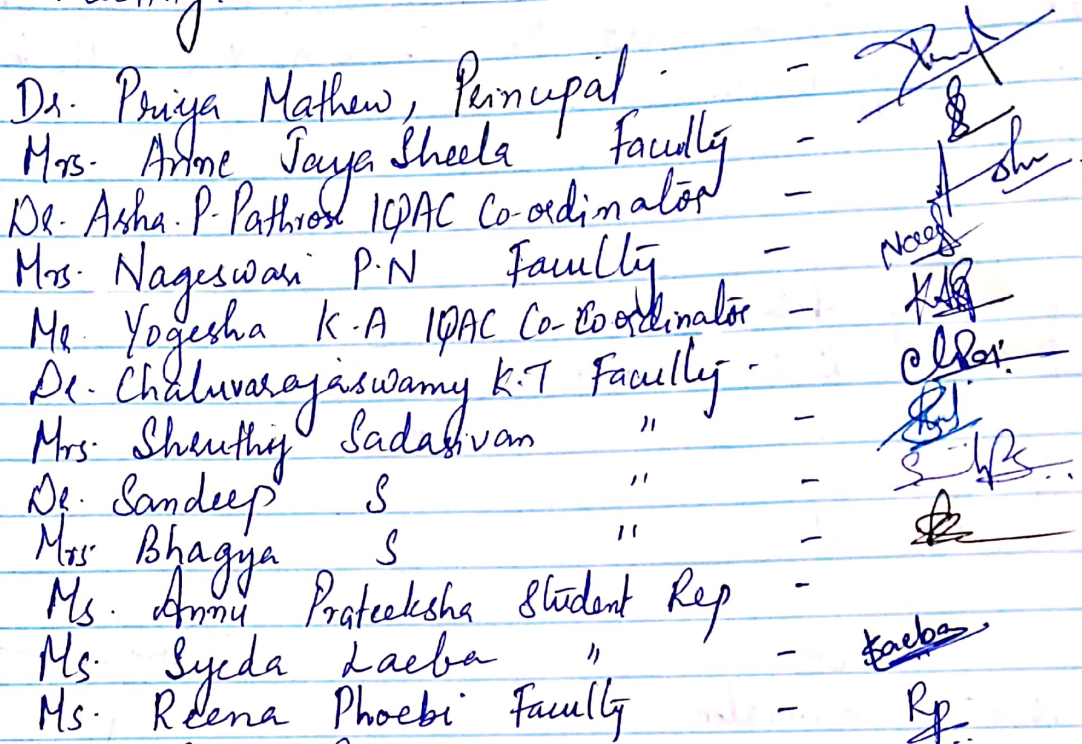 Dr. Priya Mathew, Principal -
Mrs. Anne Jaya Sheela Faculty -
Dr. Asha. P. Pathrose IQAC Co-ordinator - Asha
Mrs. Nageswari P.N Faculty - Nag
Mr. Yogesha K.A IQAC Co-Coordinator - KAY
Dr. Chaluvarajaswamy K.T Faculty -
Mrs. Shruthy Sadasivan " -
Dr. Sandeep S " -
Mrs. Bhagya S " -
Ms. Annu Prateeksha Student Rep -
Ms. Syeda Laeba " - Laeba
Ms. Reena Phoebi Faculty - Rp